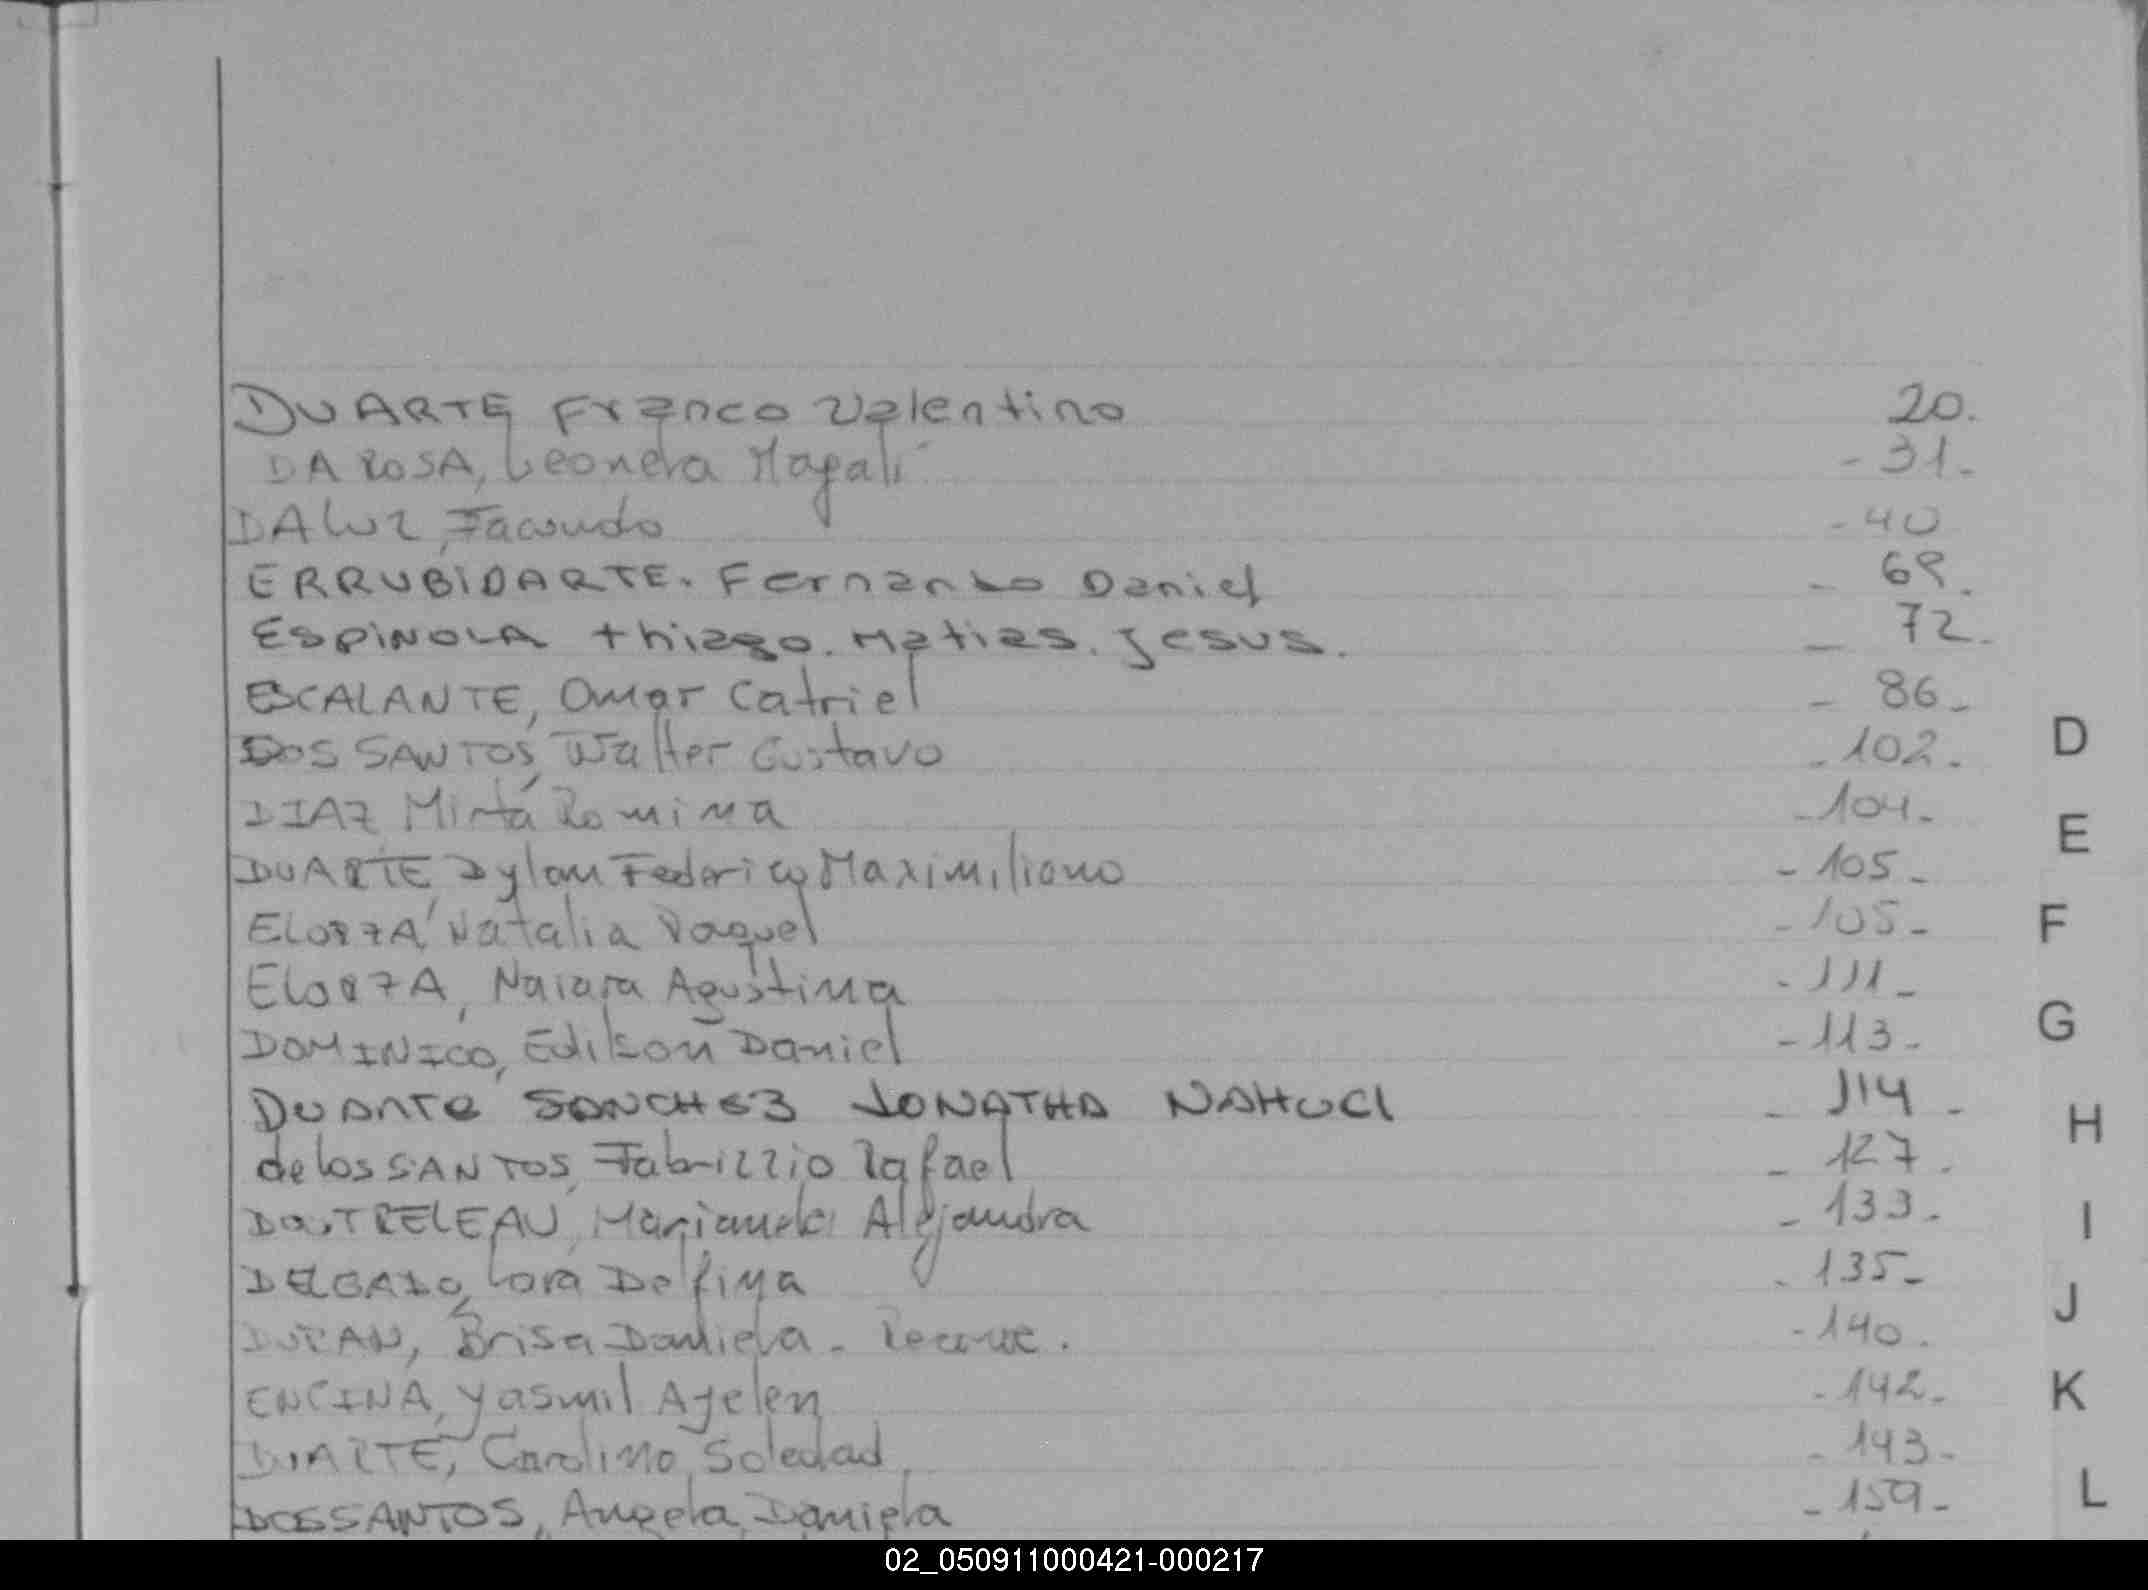 DUARTE Franco Valentino 20.
DA ROSA, Leonela Magalí - 31-
DA LUZ, Facundo - 40
ERRUBIDARTE. Fernando Daniel - 69.
ESPINOLA thiago. Matias. Jesus. - 72.
ESCALANTE, Omar Catriel - 86-
DOS SANTOS, Walter Gustavo - 102.
DIAZ Mirta Romina - 104-
DUARTE, Dylan Federico Maximiliano - 105-
ELORZA, Natalia Raquel - 105-
ELORZA, Naiara Agustina - 111-
DOMINICO, Edilson Daniel - 113-
DUARTE SANCHEZ JONATHA NAHUEL - 114 -
de los SANTOS, Fabrizzio Rafael - 127.
TRELEAU, Marianela Alejandra - 133-
DELGADO, Lara Delfina - 135-
DURAN, Brisa Daniela - 140.
ENCINA, Yasmil Ayelen - 142-
Soledad - 143-
DOS SANTOS, Angela Daniela - 159-
D
E
F
G
H
I
J
K
L
02_050911000421-000217